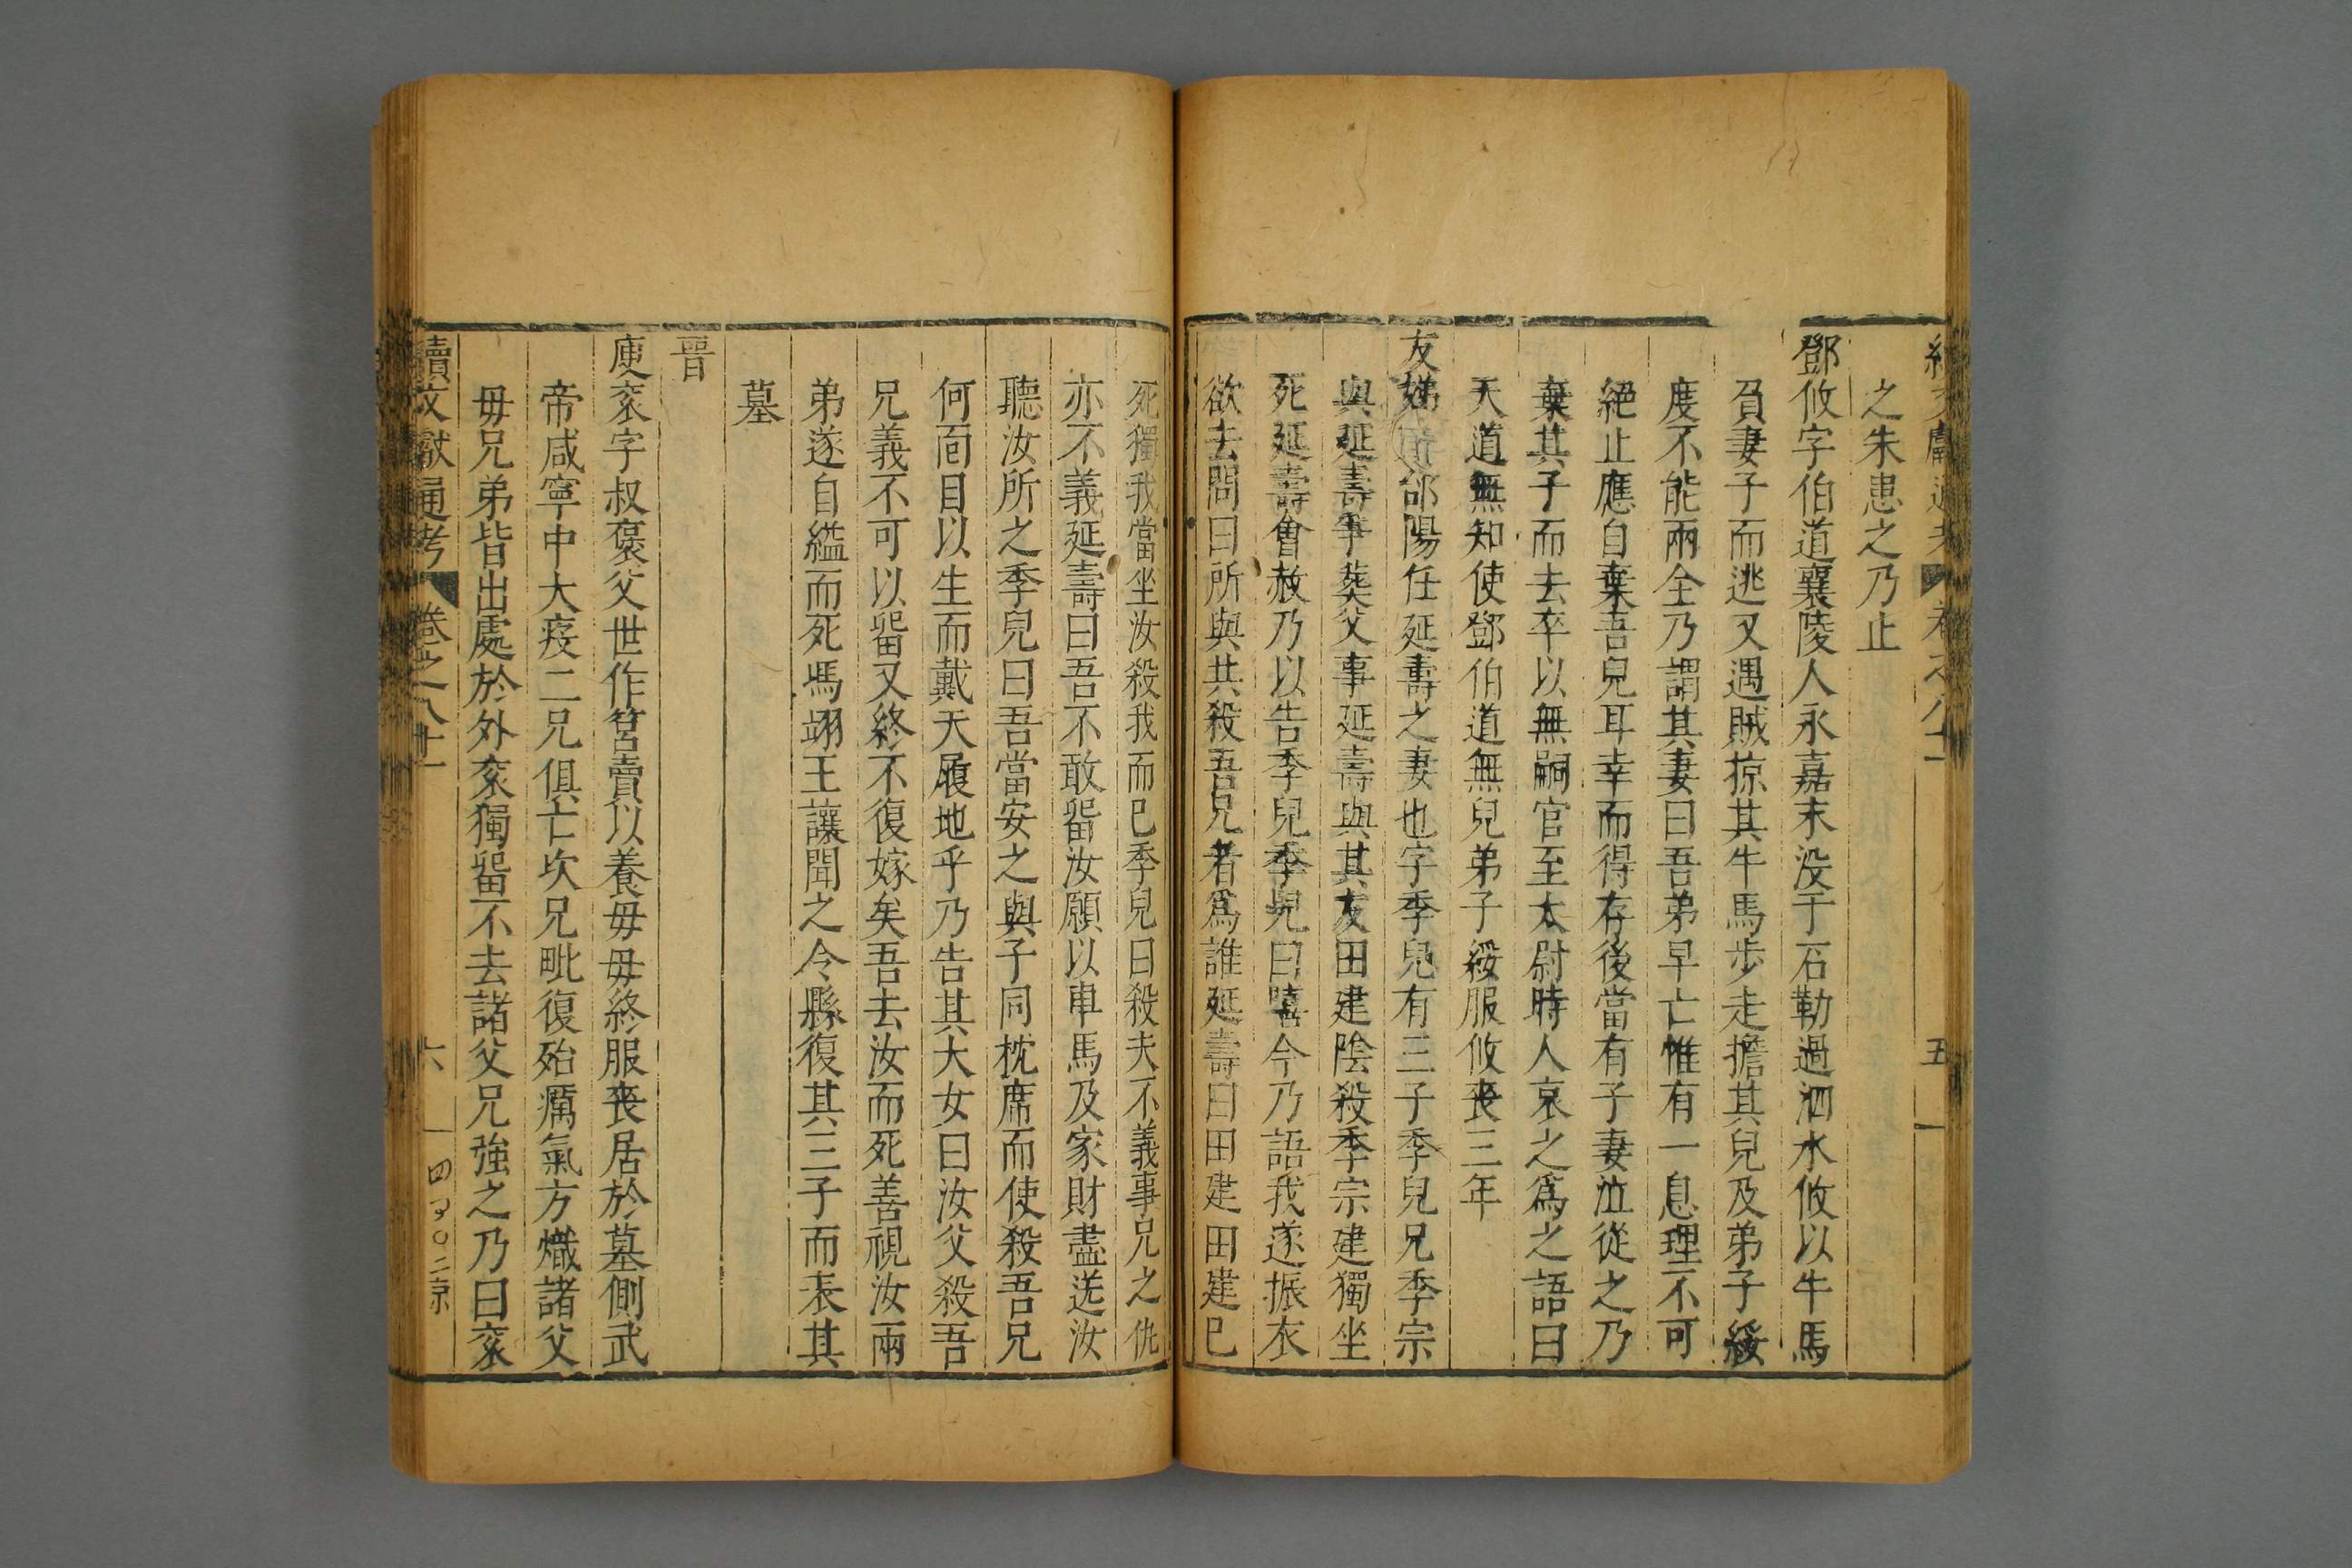 續文獻通考 卷之八十一 五
之朱恚之乃止
鄧攸字伯道襄陵人永嘉末没于石勒過泗水攸以牛馬
負妻子而逃又遇賊掠其牛馬步走擔其兒及弟子綏
度不能兩全乃謂其妻曰吾弟早亡惟有一息理不可
絕止應自棄吾兒耳幸而得存後當有子妻泣從之乃
棄其子而去卒以無嗣官至太尉時人哀之爲之語曰
天道無知使鄧伯道無兒弟子綏服攸喪三年
友娣 郃陽任延壽之妻也字季兒有三子季兒兄季宗
與延壽爭葬父事延壽與其友田建陰殺季宗建獨坐
死延壽會赦乃以告季兒季兒曰嘻今乃語我遂振衣
欲去問曰所與共殺吾兄者爲誰延壽曰田建田建已
死獨我當坐汝殺我而已季兒曰殺夫不義事兄之仇
亦不義延壽曰吾不敢畱汝願以車馬及家財盡送汝
聽汝所之季兒曰吾當安之與子同枕席而使殺吾兄
何面目以生而戴天履地乎乃告其大女曰汝父殺吾
兄義不可以畱又終不復嫁矣吾去汝而死善視汝兩
弟遂自縊而死馮翊王讓聞之令縣復其三子而表其
墓
晉
庾袞字叔褒父世作筥賣以養毋毋終服喪居於墓側武
帝咸寧中大疫二兄俱亡次兄毗復殆癘氣方熾諸父
毋兄弟皆出處於外袞獨畱不去諸父兄強之乃曰袞
續文獻通考 卷之八十一 六